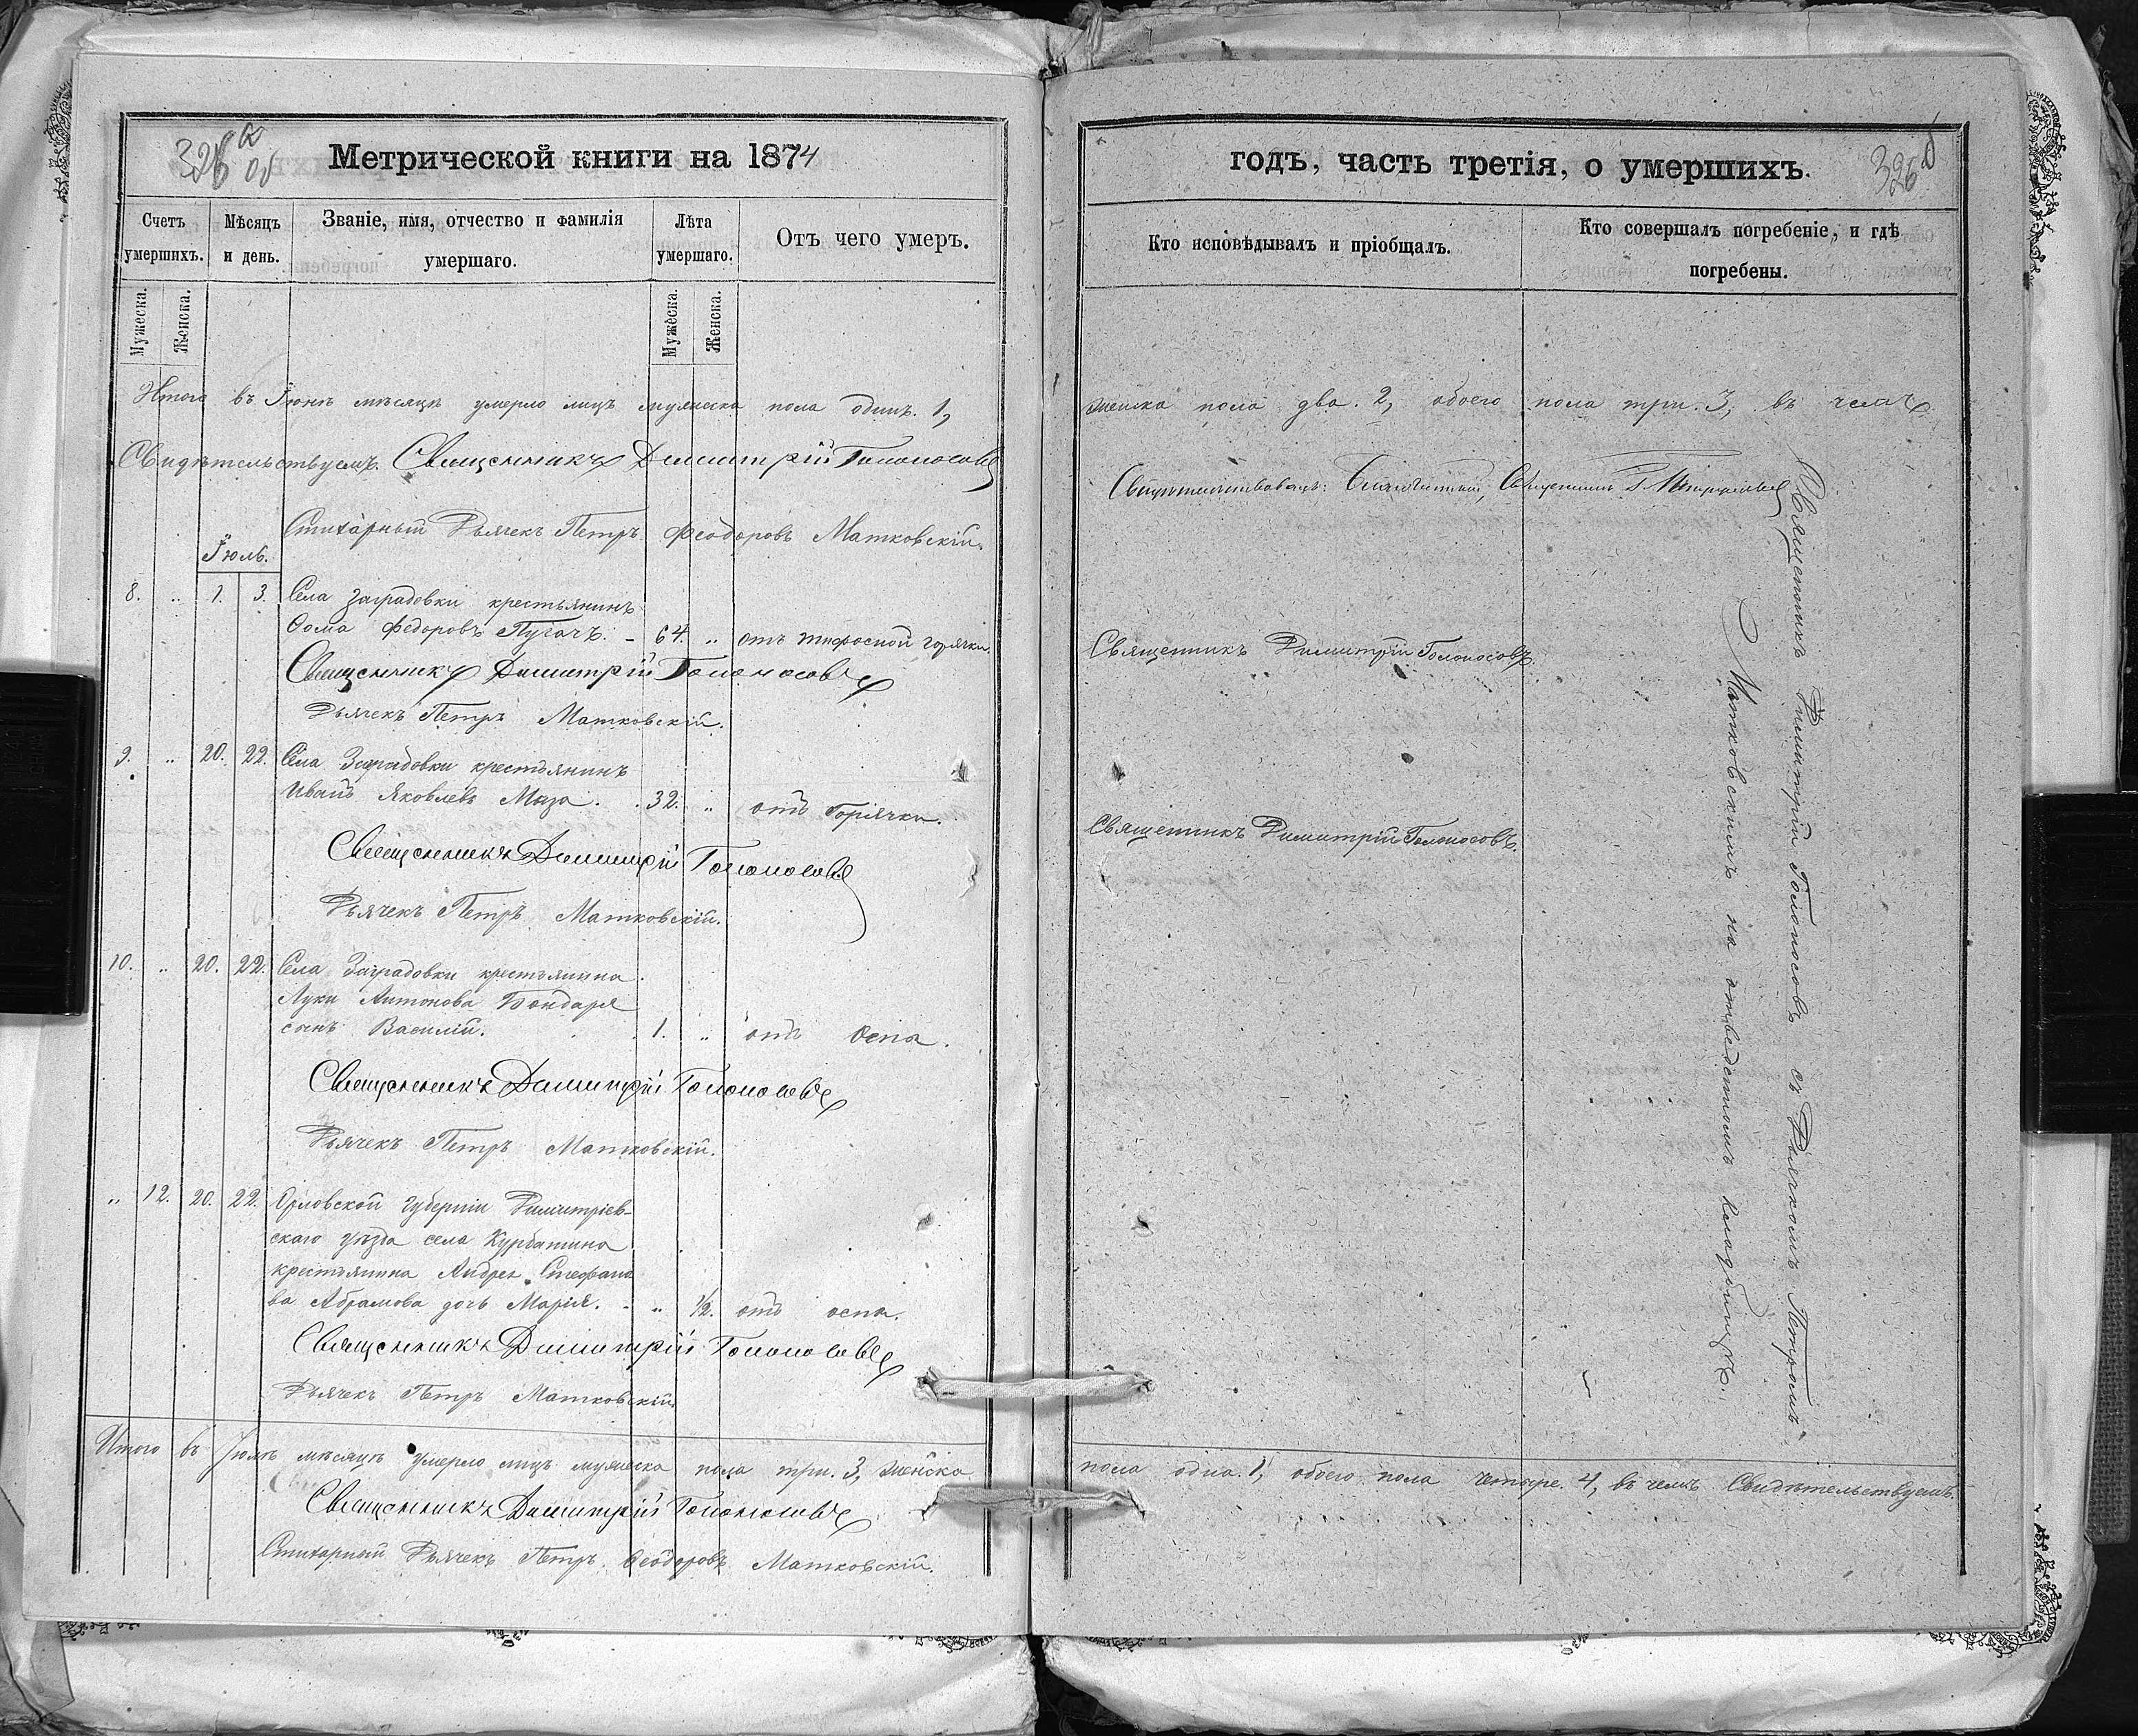 326 об
Метрической книги на 1874
Счетъ умершихъ.
Мѣсяцъ и день.
Званіе, имя, отчество и фамилія умершаго.
Лѣта умершаго.
Отъ чего умеръ.
Мужеска.
Женска.
Мужеска.
Женска.
Итого въ Іюнѣ мѣсяцѣ умерло лицъ мужеска пола одинъ. 1,
Свидѣтельствуемъ. Священникъ Димитрій Голоносовъ
Стихарный Дьячекъ Петръ Феодоровъ Матковскій.
Іюль.
8. „ 1. 3. Села Заградовки крестьянинъ
Ѳома Федоровъ Пугачъ. - 64. „ отъ тифосной горячки.
Священникъ Димитрій Голоносовъ
Дьячекъ Петръ Матковскій.
9. „ 20. 22. Села Заградовки крестьянинъ
Иванъ Яковлевъ Маза. . 32. „ отъ Горячки.
Священникъ Димитрій Голоносовъ
Дьячекъ Петръ Матковскій.
10. „ 20. 22. Села Заградовки крестьянина
Луки Антонова Бондаря
сынъ Василій. 1. „ отъ Оспы.
Священникъ Димитрій Голоносовъ
Дьячекъ Петръ Матковскій.
„ 12. 20. 22. Орловской губерніи Димитріев-
скаго уѣзда села Курбатина
крестьянина Андрея Стефано
ва Абрамова дочь Марія. - „ 1/2. отъ оспы.
Священникъ Димитрій Голоносовъ
Дьячекъ Петръ Матковскій
Итого въ Іюлѣ мѣсяцѣ умерло лицъ мужеска пола три. 3, женска
Священникъ Димитрій Голоносовъ
Стихарный Дьячекъ Петръ Ѳеодоровъ Матковскій.
годъ, часть третія, о умершихъ.
326
Кто исповѣдывалъ и пріобщалъ.
Кто совершалъ погребеніе, и гдѣ погребены.
женска пола два. 2, обоего пола три. 3, въ чемъ
Священникъ
Священникъ Димитрій Голоносовъ.
Священникъ Димитрій Голоносовъ.
Священникъ Димитрій Голоносовъ съ Дьячкомъ Петромъ
Матковскимъ на отведенномъ кладбищѣ.
пола одна. 1, обоего пола четыре. 4, въ чемъ Свидѣтельствуемъ.